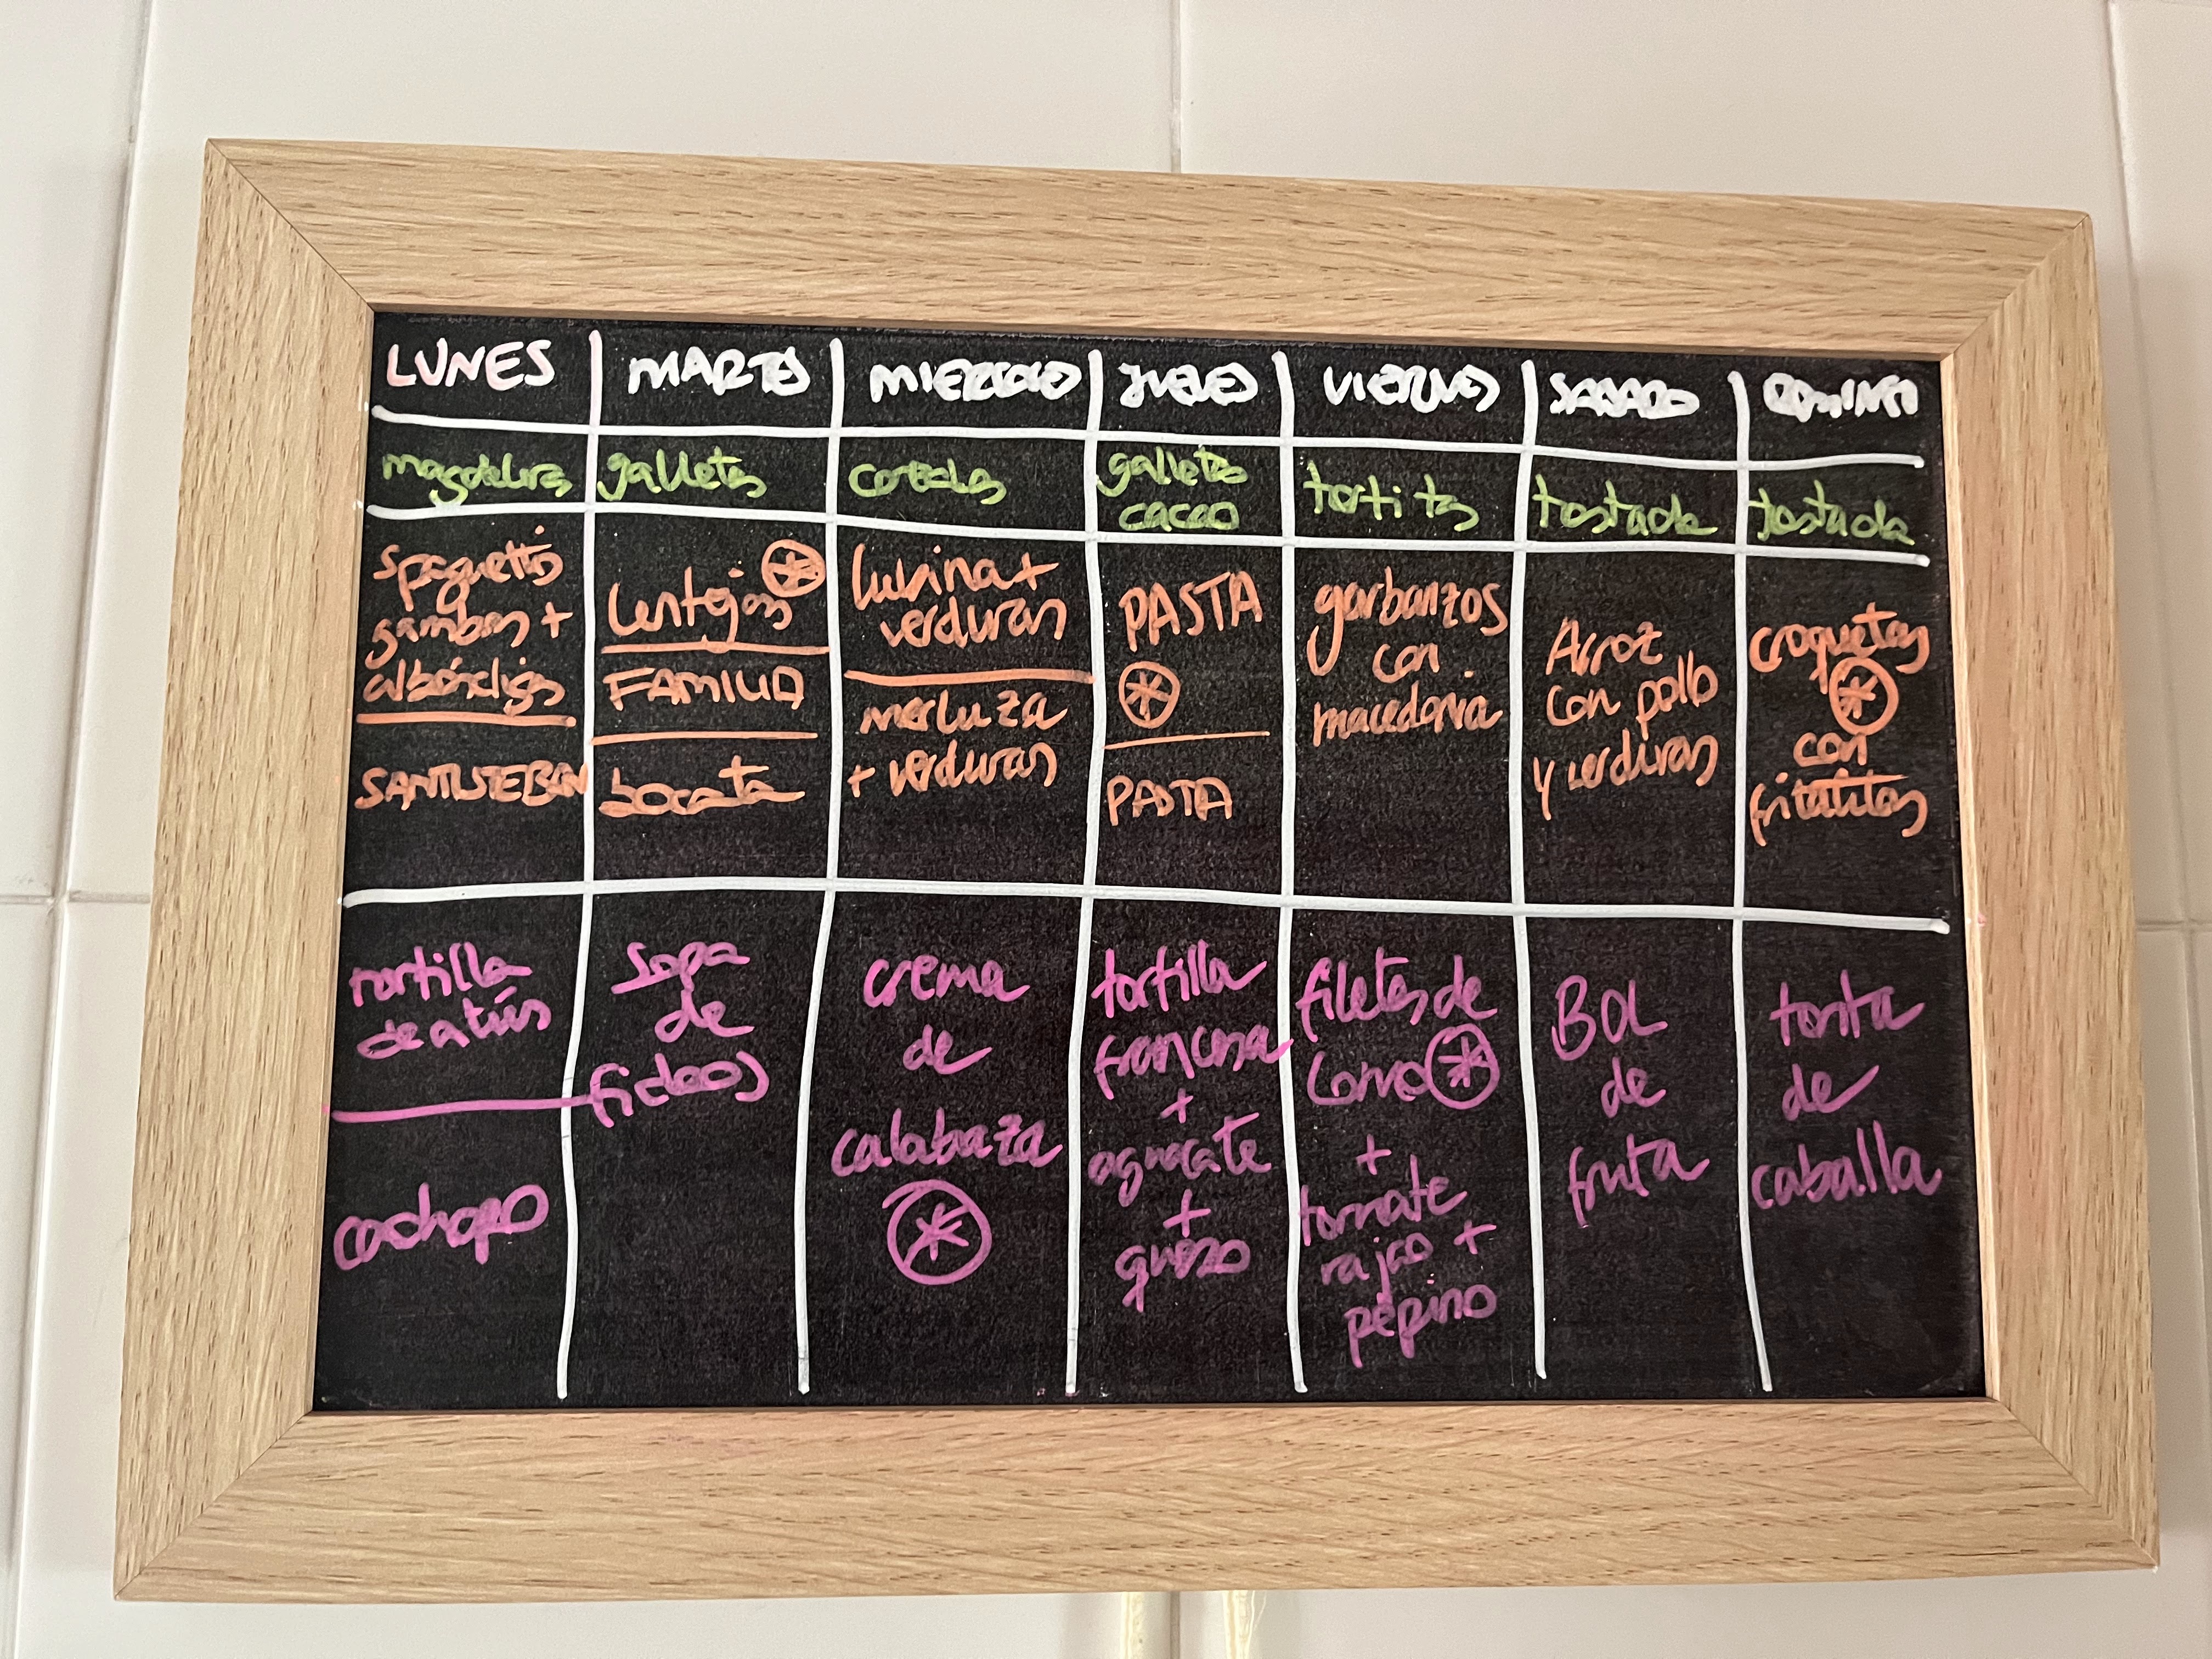 LUNES
MARTES
MIERCOLES
JUEVES
VIERNES
SABADO
DOMINGO
magdalenas
galletas
cereales
galletas
cacao
tortitas
tostada
tostada
spaguettis
gambas +
albóndigas
SANTISTEBAN
Lentejas
FAMILIA
bocata
lubina +
verduras
merluza
+ verduras
PASTA
PASTA
garbanzos
con
macedonia
Arroz
con pollo
y verduras
croquetas
con
tortilla
de atún
cachopo
sopa
de
fideos
crema
de
calabaza
tortilla
francesa
+
aguacate
+
queso
filetes de
Lomo
+
tomate
rajao +
pepino
BOL
de
fruta
tosta
de
caballa